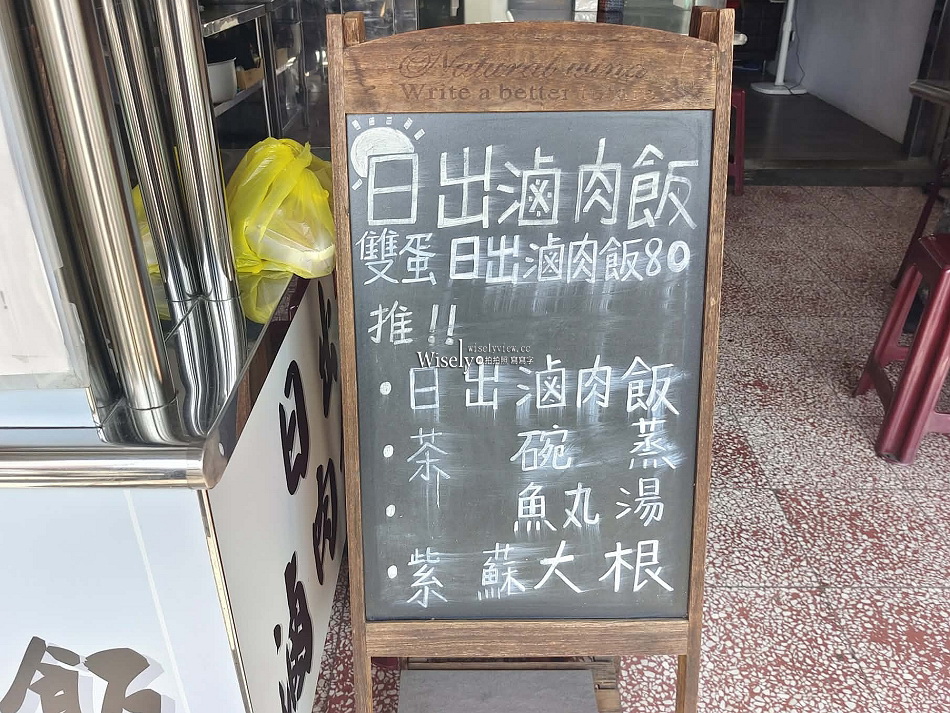 Natural mind
Write a better
日出滷肉飯
雙蛋日出滷肉飯80
推!!
wiselyview.cc
Wisely拍拍照 寫寫字
·日出滷肉飯
·茶碗蒸
·魚丸湯
·紫蘇大根
日
滷
肉
飯